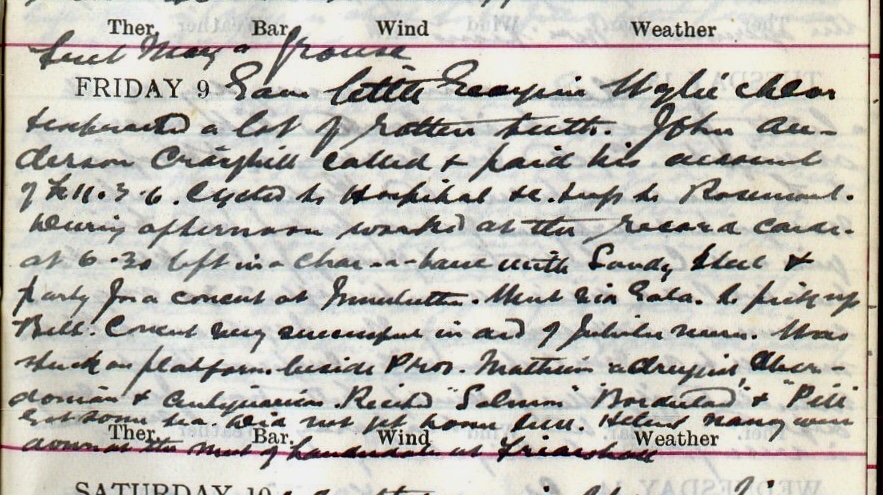 Ther. Bar. Wind Weather
Sent May a grouse
FRIDAY 9 Gave little Georgina Wylie chlor
& extracted a lot of rotten teeth. John An-
derson Craighill called & paid his account
of £11.3.6. Cycled to Hospital &c. to Rosemount.
During afternoon worked at the record cards.
at 6.30 left in a char-a-banc with Sandy Steel &
party for a concert at Innerleithen. Went via Gala. to pick up
Bell. Concert very successful in aid of Jubilee nurses. Was
stuck on platform beside Prov. Mathieson a Aber-
donian & antiquarian. Recited "Salmon" & "Pill
Got some tea. Did not get home till. Helen & Nancy were
Ther. Bar. Wind Weather
down at the meet of at Friarshall
SATURDAY 10